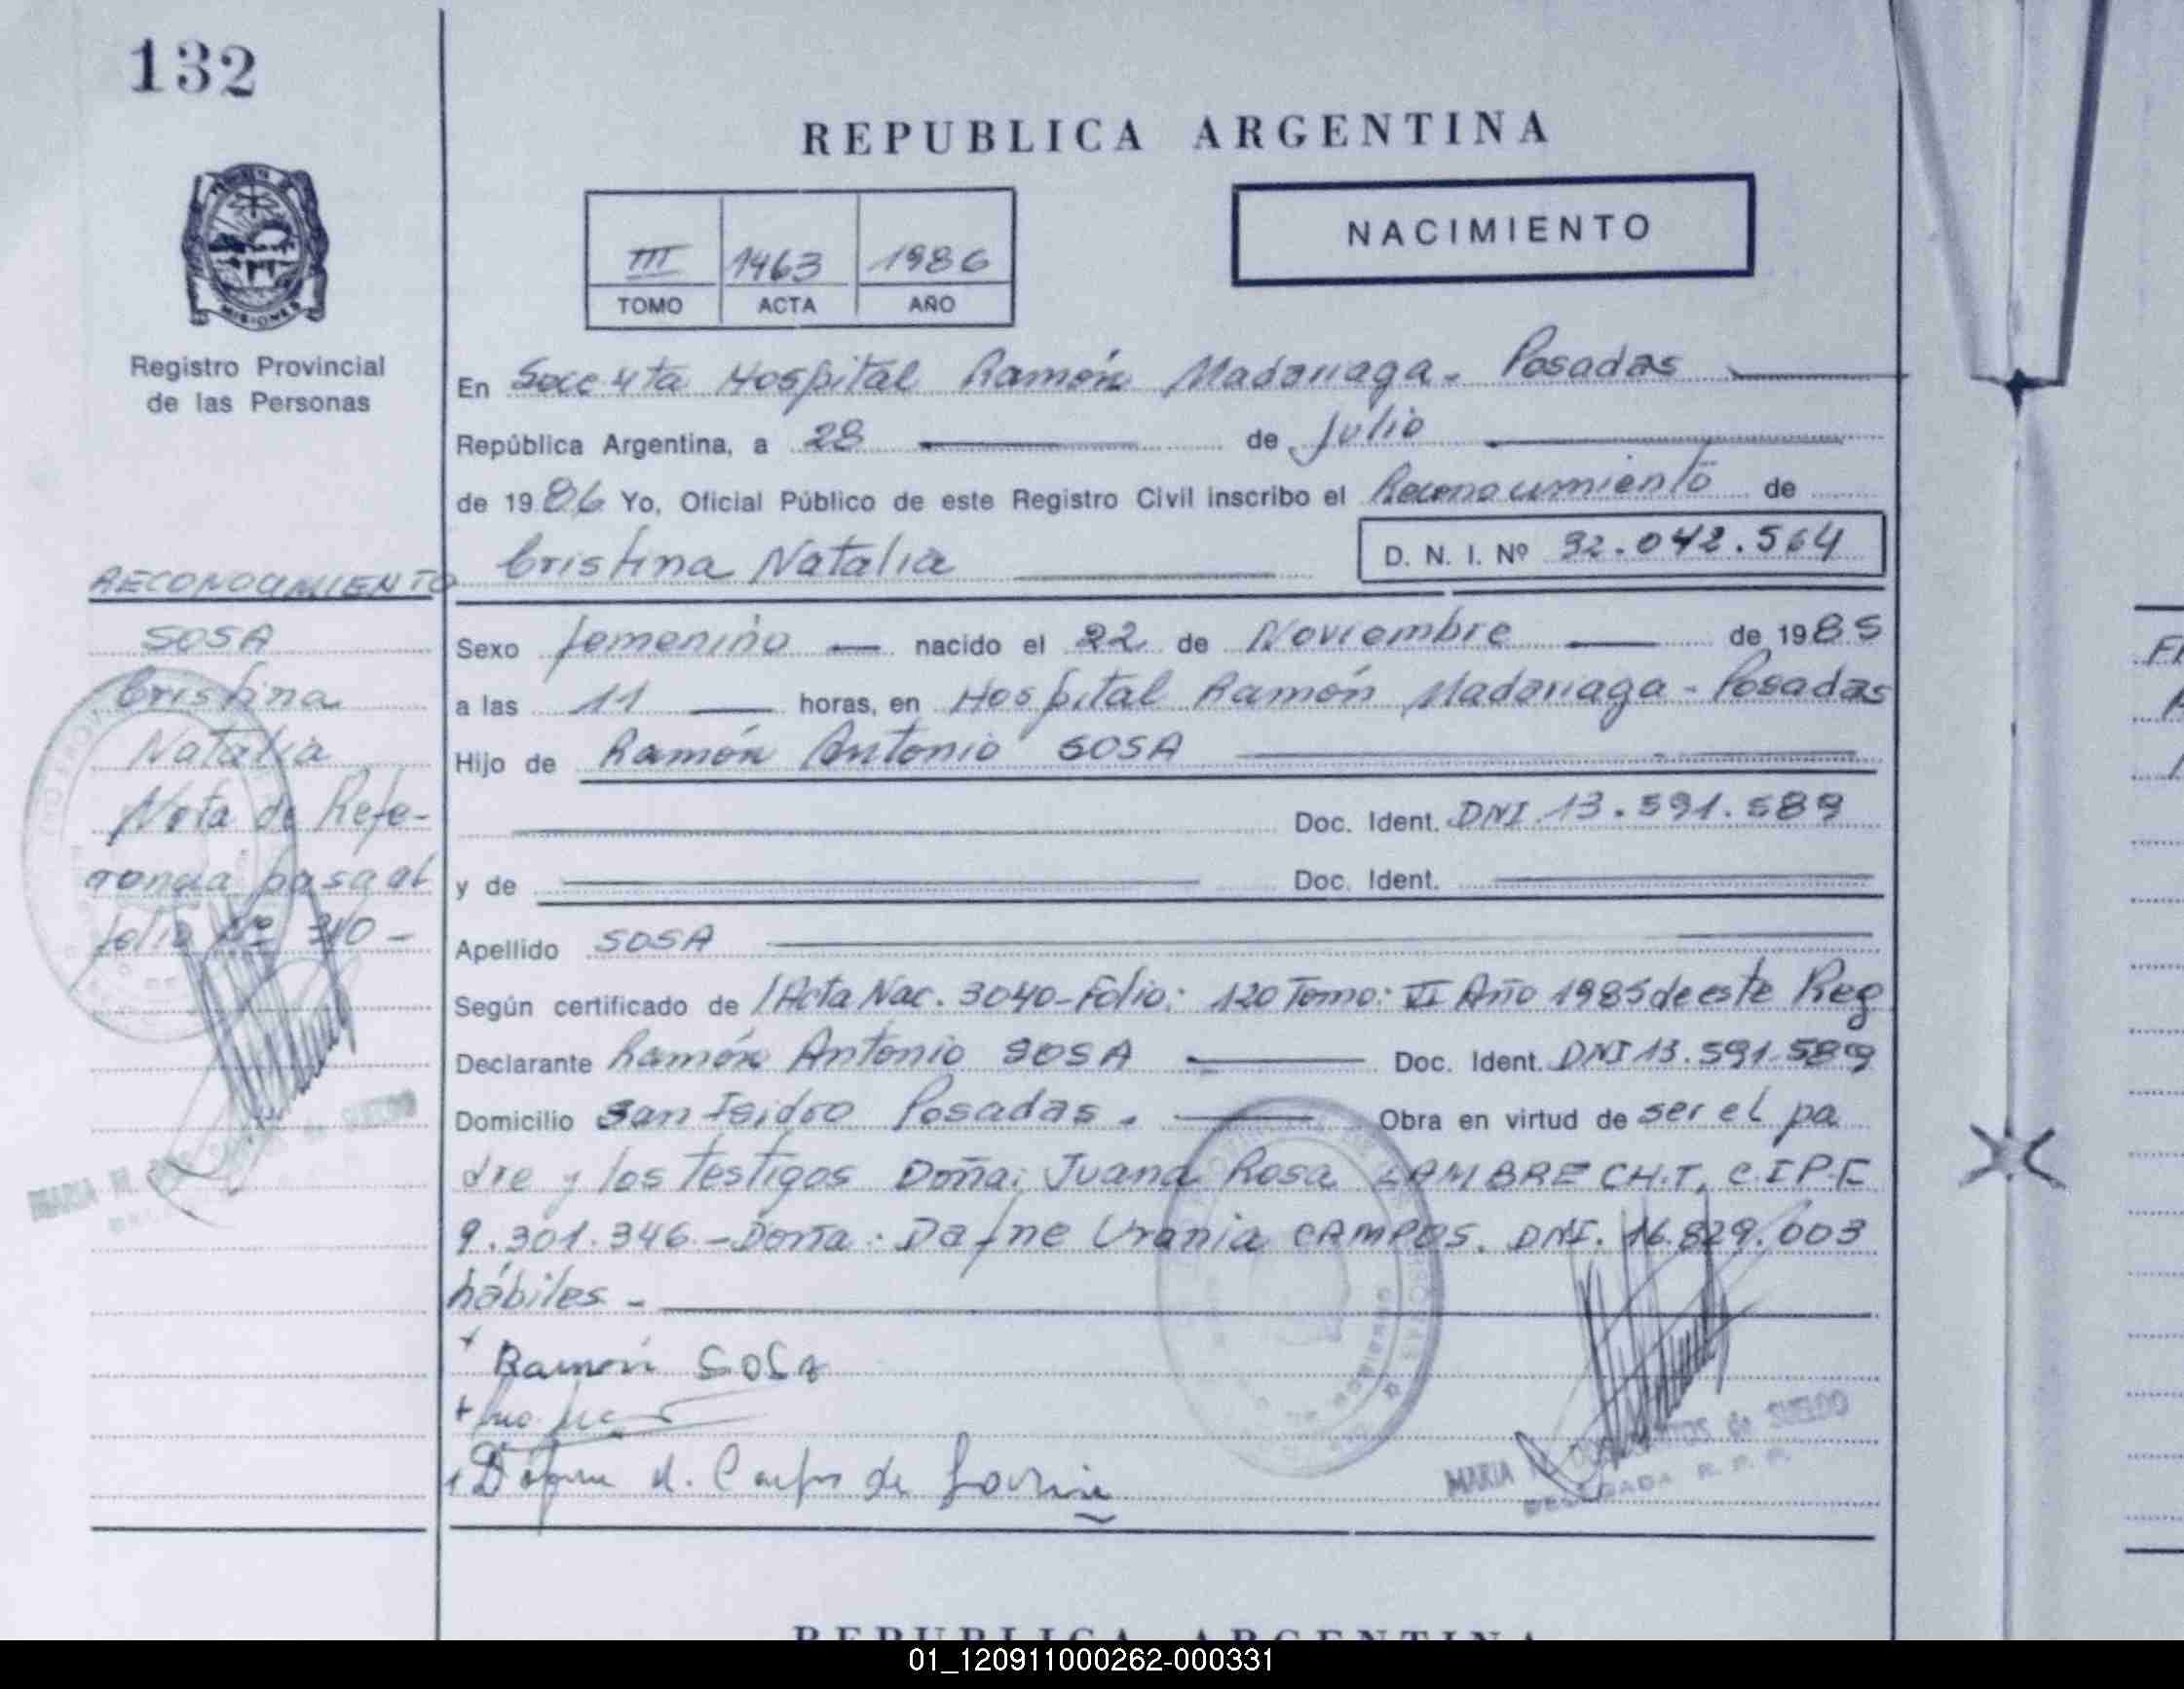 132
REPUBLICA ARGENTINA
NACIMIENTO
III 1463 1986
TOMO ACTA AÑO
MISIONES
Registro Provincial
de las Personas
En Hospital Ramón Madariaga - Posadas
República Argentina, a 28 de Julio
de 1986 Yo, Oficial Público de este Registro Civil inscribo el Reconocimiento de
Cristina Natalia D. N. I. Nº 32.042.564
RECONOCIMIENTO
SOSA
Cristina
Natalia
Nota de Refe-
rencia pasa al
folio Nº 310 -
Sexo femenino nacido el 22 de Noviembre de 1985
a las 11 horas, en Hospital Ramón Madariaga - Posadas
Hijo de Ramón Antonio SOSA
Doc. Ident. DNI 13.591.589
y de Doc. Ident.
Apellido SOSA
Según certificado de /Acta Nac. 3040-Folio: 120 Tomo: VI Año 1985 de este Reg
Declarante Ramón Antonio SOSA Doc. Ident. DNI 13.591.589
Domicilio San Isidro Posadas. Obra en virtud de ser el pa
dre y los testigos Doña: Juana Rosa LAMBRECHT, C.I.P.F.
9.301.346 - Doña: Dafne Urania CAMPOS. DNI. 16.829.003
hábiles -
Ramón Sosa
MARIA de SUELDO
DELEGADA R. P. P.
REPUBLICA ARGENTINA
01_120911000262-000331